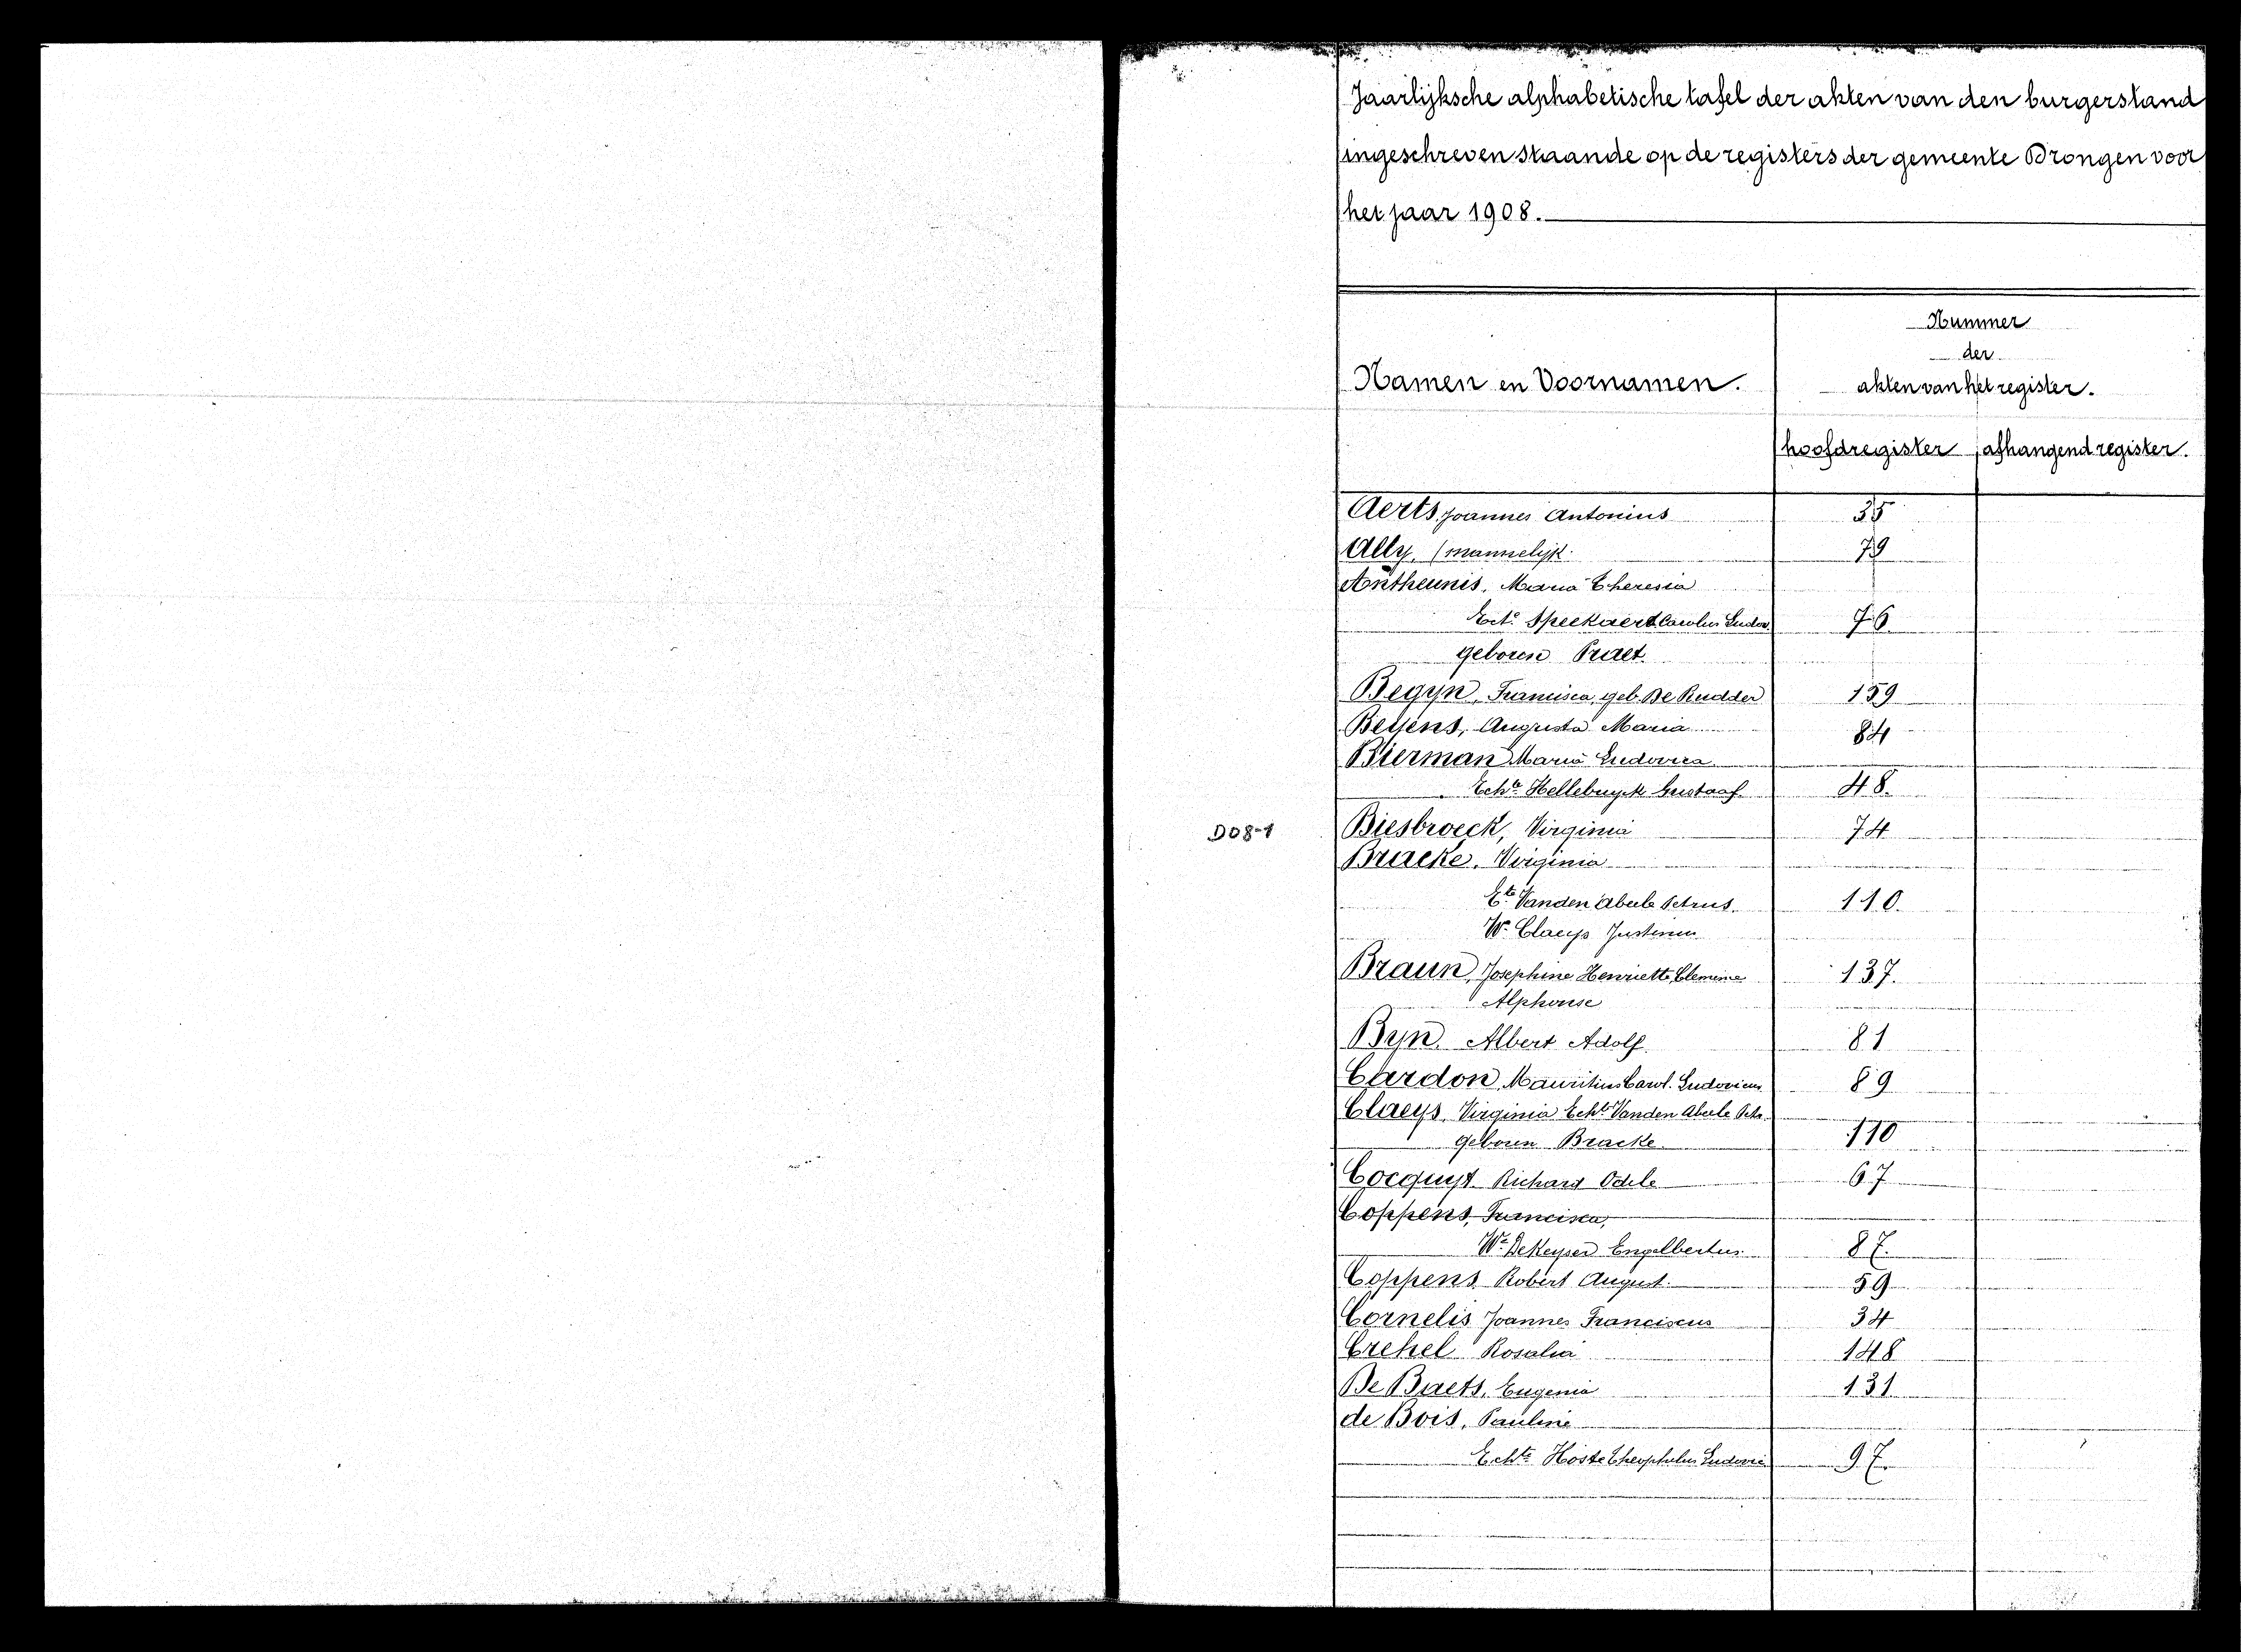 Jaarlijksche alphabetische tafel der akten van den burgerstand
ingeschreven staande op de registers der gemeente Drongen voor
het jaar 1908.
Namen en Voornamen.
Nummer
der
akten van het register.
hoofdregister afhangend register.
Aerts, Joannes Antonius 35
Ally, (mannelijk. 79
Antheunis, Maria Theresia
Ecte Speekaert Carolus Ludov. 76
geboren Praet.
Begyn, Francisca, geb. De Rudder 159
Beyens, Augusta Maria 84
Bierman Maria Ludovica
Echte Hellebuyck Gustaaf. 48.
D08-1
Biesbroeck, Virginia 74
Bracke, Virginia
Ete Vanden Abeele Petrus. 110.
We Claeys Justinus
Braun, Josephine Henriette, Clemence 137.
Alphonse
Byn, Albert Adolf. 81
Cardon, Mauritius Carol. Ludovicus 89
Claeys, Virginia Echte Vanden Abeele Petr.
geboren Bracke. 110
Cocquyt Richard Odile 67
Coppens, Francisca,
We DeKeyser Engelbertus. 87.
Coppens Robert August. 59
Cornelis Joannes Franciscus 34
Crehel Rosalia 148
De Baets, Eugenia 131
de Bois, Pauline
Echte Hoste Theophilus Ludovic 97.